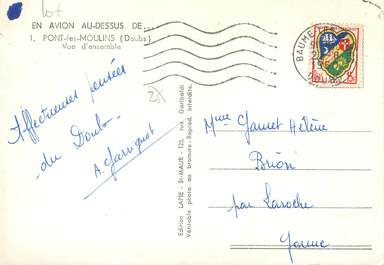 lot
EN AVION AU-DESSUS DE....
1. PONT-les-MOULINS (Doubs)
Vue d'ensemble
Affectueuses pensées
du Doubs
A.
Edition LAPIE - St-MAUR - 125, rue Garibaldi
Véritable photo au bromure - Reprod. interdite.
BAUME-LES
Mme Hélène
Brion
par Laroche
Yonne